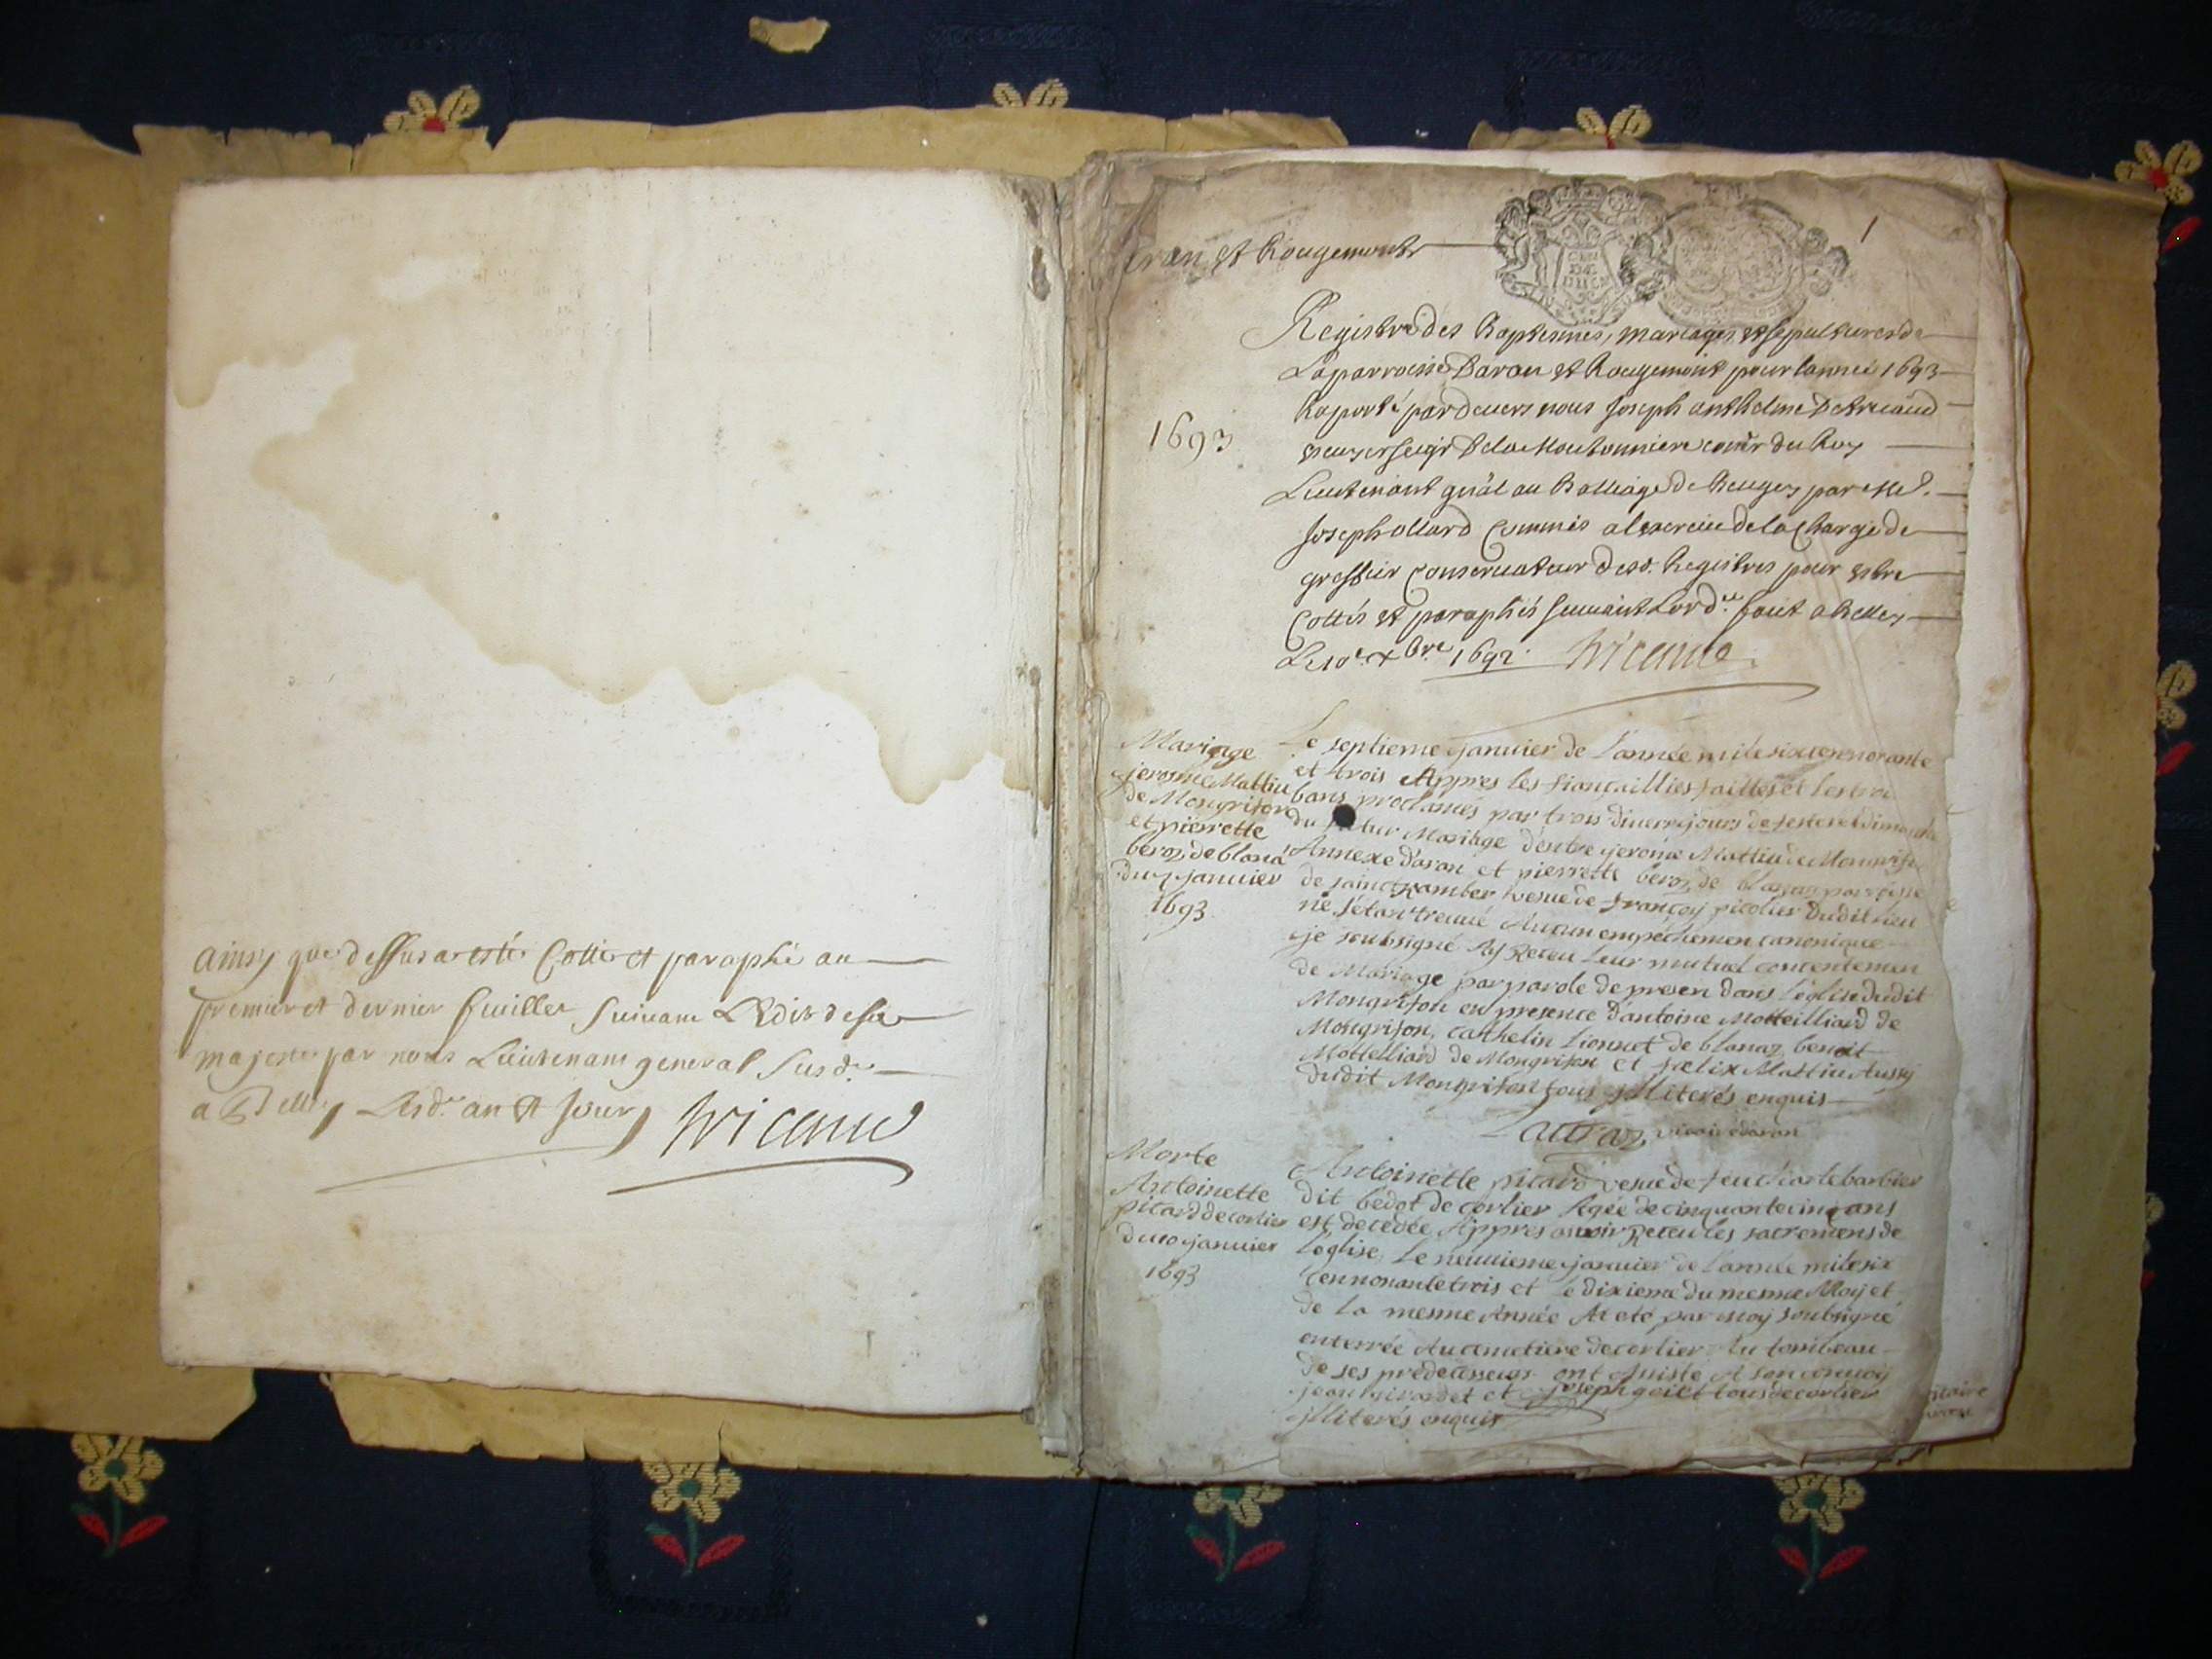 ainsy que dessus a esté Cotté et paraphé au
premier et dernier feuillet suivant L'Edit de sa
majesté par nous Lieutenant general susd.
a Belley Lesd. an et jour
aran et Rougemont
1
Registre des Baptesmes, mariages et sepultures de
La parroisse Daran et Rougemont pour lannée 1693
1693
Raporté pardevers nous Joseph anthelme
escuyer seigr De la conser du Roy
Lieutenant gnal au Balliage de Beugey par Me
Joseph ollard Commis a lexercice de la Charge de
greffier Conservateur desd. Registres pour estre
Cottés et paraphés suivant Lord. fait a Belley
Le 10e xbre 1692
Mariage
jerome Mattiu
de Mongrifon
et pierrette
beroz de blanaz
du 7 janvier
1693
Le septieme janvier de l'année mile six cen nonante
et trois Appres les fiançaillies faittes et les trois
bans proclamés par trois divers jours de festes et dimanche
du futur Mariage d'entre jerome Mattiu de Mongrifon
Annexe d'aran et pierrette beroz de blanaz parroisse
de sainct rambert vesve de françoy picolier dudit lieu
ne s'étant treuvé Aucun empéchemen canonique
je soubsigné Ay Receu leur mutuel consentemen
de Mariage par parole de presen dans l'église dudit
Mongrifon en presence d'antoine Motteilliard de
Mongrifon, cathelin Lionnet de blanaz, benoit
Mottelliard de Mongrifon et felix Mattiu Aussy
dudit Mongrifon tous jlliterés enquis
vicaire d'aran
Morte
Antoinette
picard de corlier
du 10 janvier
1693
Antoinette picard vesve de feu barbier
dit bedot de corlier Agée de cinquante cinq ans
est decedée Appres avoir Receu les sacremens de
l'église Le neuvieme janvier de l'année mile six
cen nonante trois et le dixieme du mesme Moy et
de la mesme Année At eté par moy soubsigné
enterrée Au cemetiere de corlier Au tombeau
de ses predecesseurs ont Assisté A son convoy
jean girardet et joseph goiet tous de corlier
jlliterés enquis